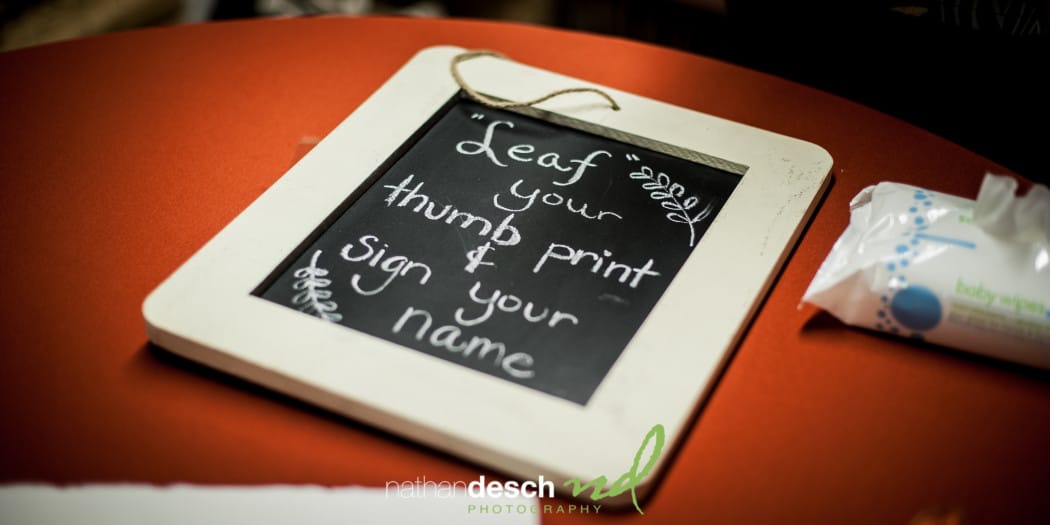 "Leaf"
your
thumb print
&
Sign your
name
baby wipes
nathandesch nd
PHOTOGRAPHY